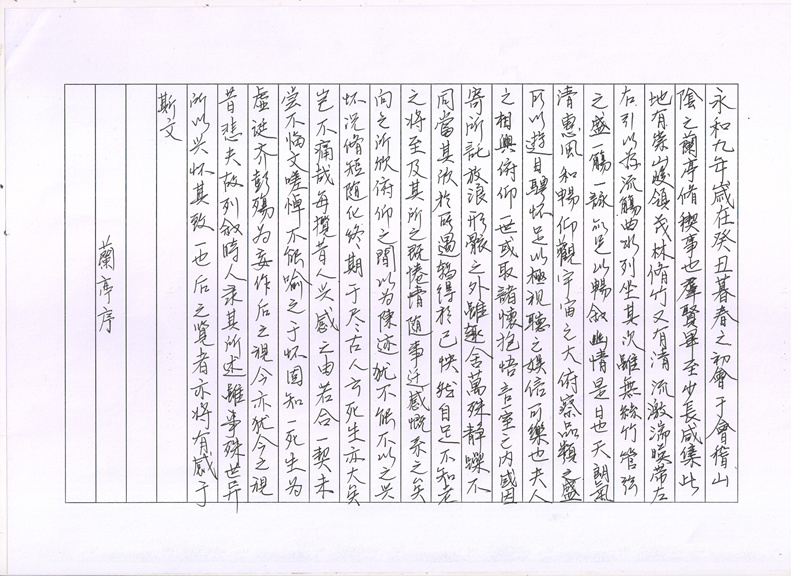 永和九年歲在癸丑暮春之初會于會稽山
陰之蘭亭脩稧事也羣賢畢至少長咸集此
地有崇山峻領茂林脩竹又有清流激湍暎帶左
右引以為流觴曲水列坐其次雖無絲竹管弦
之盛一觴一詠亦足以暢敘幽情是日也天朗氣
清惠風和暢仰觀宇宙之大俯察品類之盛
所以遊目騁怀足以極視聽之娛信可樂也夫人
之相與俯仰一世或取諸懷抱悟言室之内或因
寄所託放浪形骸之外雖趣舍萬殊静躁不
同當其欣於所遇暫得於己怏然自足不知老
之将至及其所之既惓情随事迁感慨系之矣
向之所欣俯仰之間以为陳迹犹不能不以之兴
怀况脩短随化终期于尽古人云死生亦大矣
岂不痛哉每攬昔人兴感之由若合一契未
尝不临文嗟悼不能喻之于怀固知一死生为
虚诞齐彭殤为妄作后之視今亦犹今之視
昔悲夫故列敘時人录其所述雖事殊世异
所以兴怀其致一也后之覽者亦将有感于
斯文
蘭亭序